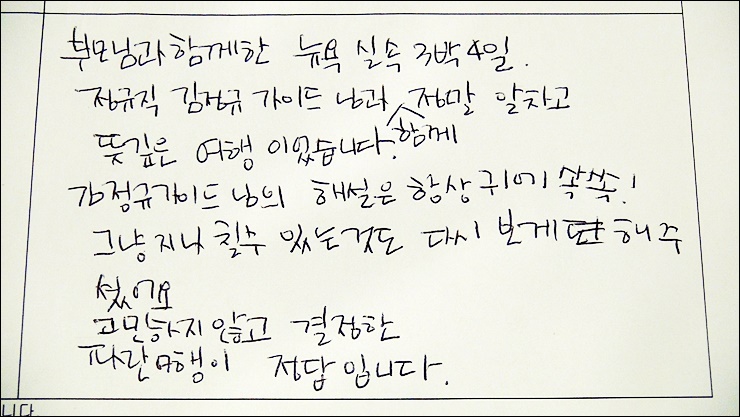 부모님과 함께한 뉴욕 실속 3박 4일.
정규직 김정규 가이드 님과 함께 정말 알차고
뜻깊은 여행 이었습니다.
김정규가이드 님의 해설은 항상 귀에 쏙쏙!
그냥 지나 칠수 있는것도 다시 보게 해 주
셨어요
고민하지 않고 결정한
파란여행이 정답 입니다.
니다